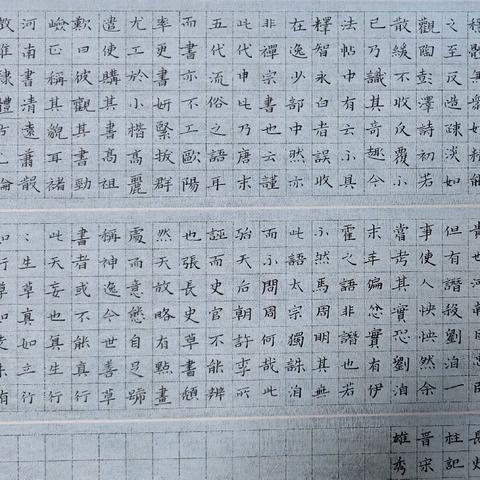 之至反造疎淡如
觀陶彭澤詩初若
散緩不收反覆不
已乃識其奇趣今
法帖中有云不具
釋智永白者誤收
在逸少部中然亦
非禪師書也云謹
此代申此乃唐末
五代流俗之語耳
而書亦不工歐陽
率更書妍緊拔群
尤工於小楷高麗
遣使購其書高祖
歎曰彼觀其書勁
嶮正稱其貌耳褚
河南書清遠蕭散
但有譖殺劉洎一
事使人怏怏然余
嘗考其實恐劉洎
末年褊忿實有伊
霍之語非譖也若
不然馬周明其無
此語太宗獨誅洎
而不問周何哉此
殆天后朝許李所
誣而史官不能辨
也張長史草書頹
然天放略有點畫
處而意態自足號
稱神逸今世善草
書者或不能真行
此大妄也真生行
行生草真如立行
如行草如走未有
柱記
晉宋
雄秀